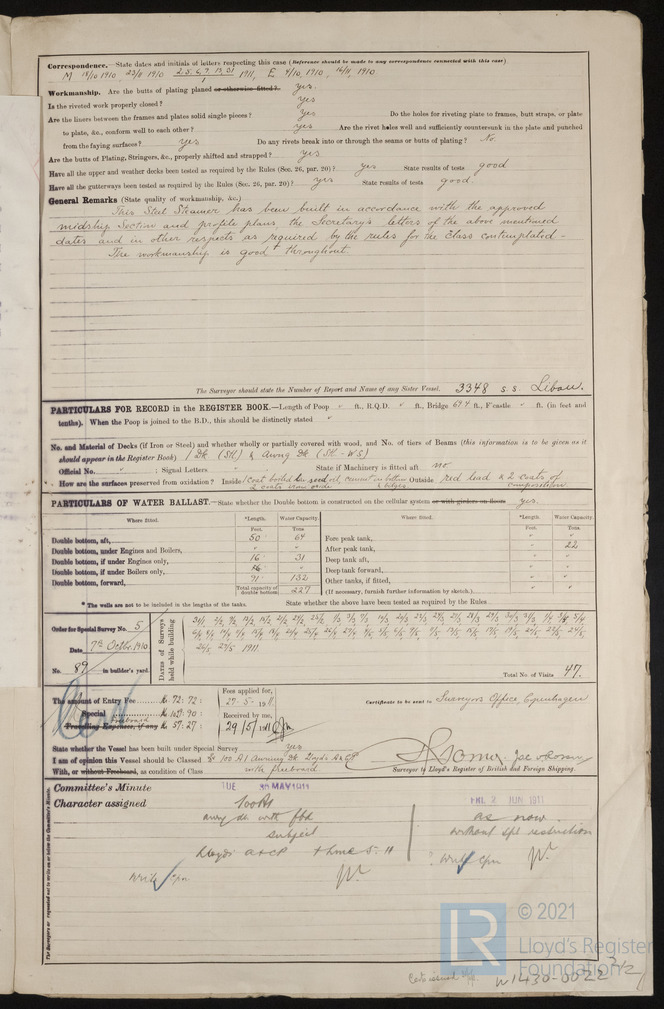 Correspondence.—State dates and initials of letters respecting this case (Reference should be made to any correspondence connected with this case)
M 18/10 1910 22/11 1910 1911, E 4/10, 1910, 16/11, 1910
Workmanship. Are the butts of plating planed or otherwise fitted? yes
Is the riveted work properly closed? yes
Are the liners between the frames and plates solid single pieces? yes Do the holes for riveting plate to frames, butt straps, or plate
to plate, &c., conform well to each other? yes Are the rivet holes well and sufficiently countersunk in the plate and punched
from the faying surfaces? yes Do any rivets break into or through the seams or butts of plating? No.
Are the butts of Plating, Stringers, &c., properly shifted and strapped? yes
Have all the upper and weather decks been tested as required by the Rules (Sec. 26, par. 20)? yes State results of tests good
Have all the gutterways been tested as required by the Rules (Sec. 26, par. 20)? yes State results of tests good.
General Remarks (State quality of workmanship, &c.)
This Steel Steamer has been built in accordance with the approved
midship Section and profile plans the Secretary's letters of the above mentioned
dates and in other respects as required by the rules for the Class contemplated -
The workmanship is good throughout.
The Surveyor should state the Number of Report and Name of any Sister Vessel. 3348 s.s. Libau.
PARTICULARS FOR RECORD in the REGISTER BOOK.—Length of Poop " ft., R.Q.D. " ft., Bridge ft., F'castle " ft. (in feet and
tenths). When the Poop is joined to the B.D., this should be distinctly stated "
No. and Material of Decks (if Iron or Steel) and whether wholly or partially covered with wood, and No. of tiers of Beams (this information is to be given as it
should appear in the Register Book) 1 Dk (Stl) & Awng Dk (Stl - WS)
Official No. " ; Signal Letters " State if Machinery is fitted aft no
How are the surfaces preserved from oxidation? Inside Outside red lead & 2 coats of
composition.
PARTICULARS OF WATER BALLAST.—State whether the Double bottom is constructed on the cellular system or with girders on floors yes.
Where fitted. *Length. Water Capacity. Where fitted. *Length. Water Capacity.
Feet. Tons. Feet. Tons.
Double bottom, aft, 50 64 Fore peak tank, " "
Double bottom, under Engines and Boilers, " " After peak tank, " 22
Double bottom, if under Engines only, 16 31 Deep tank aft, " "
Double bottom, if under Boilers only, " Deep tank forward, " "
Double bottom, forward, 91 132 Other tanks, if fitted, " "
Total capacity of double bottom 227 (If necessary, furnish further information by sketch.)
* The wells are not to be included in the lengths of the tanks. State whether the above have been tested as required by the Rules
Order for Special Survey No. 5
Date 7th Octbr. 1910
No. 89 in builder's yard.
Dates of Surveys held while building
26/5 27/5 1911.
Total No. of Visits 47.
The amount of Entry Fee Kr 72: 72: Fees applied for,
27.5.1911
Special Kr Received by me,
freeboard
Travelling Expenses, if any Kr 57: 27: 29/5/1911
Certificate to be sent to Surveyors Office, Copenhagen
State whether the Vessel has been built under Special Survey yes
I am of opinion this Vessel should be Classed 100 A1 Awning Dk Lloyds A&CP
With, or without Freeboard, as condition of Class with freeboard
Surveyor to Lloyd's Register of British and Foreign Shipping.
Committee's Minute TUE 30 MAY 1911
FRI. 2 JUN 1911
Character assigned 100A1
awng dk with fbd
subject
Lloyds A&CP + LMC 5.11
Write Cpn
as now
without spl restriction
Write Cpn
The Surveyors are requested not to write on or below the Committee's Minute.
LR
© 2021
Lloyd's Register
Foundation
W1430-0022 2/2